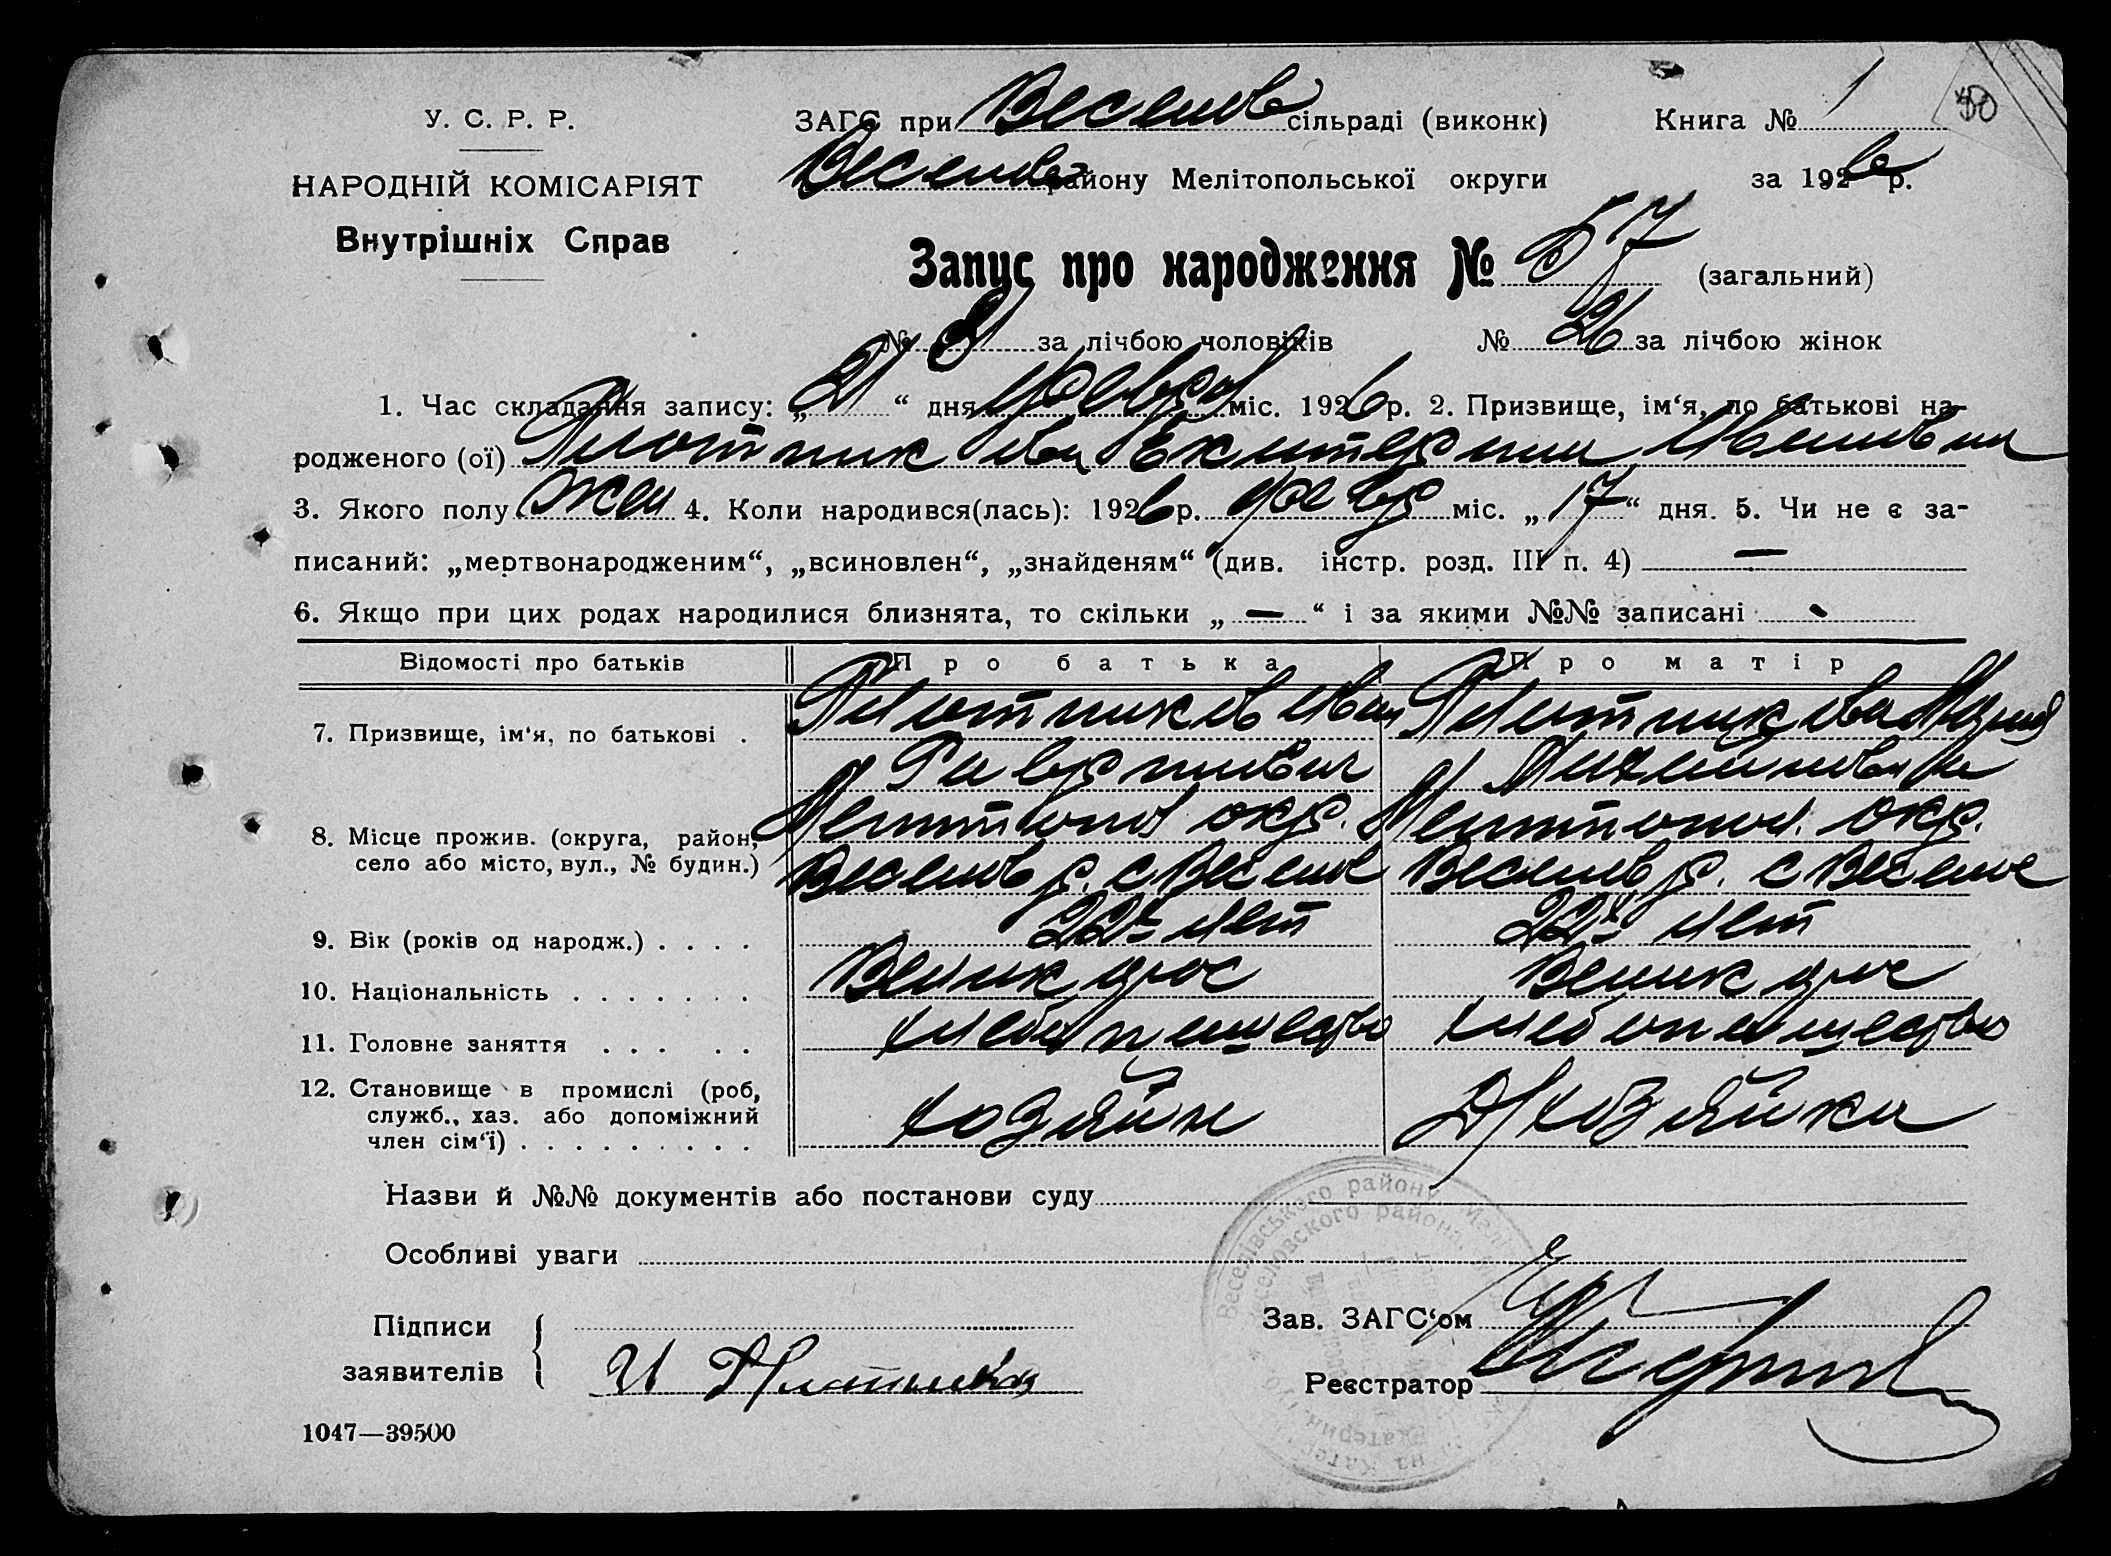 У. С. Р. Р.
НАРОДНІЙ КОМІСАРІЯТ
Внутрішніх Справ
ЗАГС при Веселов сільраді (виконк) Книга № 1
Веселов району Мелітопольської округи за 1926 р.
Запис про народження № 57 (загальний)
№ за лічбою чоловіків № 26 за лічбою жінок
1. Час складання запису: „21“ дня февраля міс. 1926 р. 2. Призвище, ім‘я, по батькові на-
родженого (ої) Плотникова Екатерина Ивановна
3. Якого полу жен 4. Коли народився(лась): 1926 р. февр міс. „17“ дня. 5. Чи не є за-
писаний: „мертвонародженим“, „всиновлен“, „знайденям“ (див. інстр. розд. III п. 4) —
6. Якщо при цих родах народилися близнята, то скільки „—“ і за якими №№ записані -
Відомості про батьків Про батька Про матір
7. Призвище, ім‘я, по батькові . Плотников Иван Плотникова Мария
Гаврилович Михайловна
8. Місце прожив. (округа, район, Мелитопол окр. Мелитопол. окр.
село або місто, вул., № будин.) Веселов р. с Веселое Веселов р. с Веселое
9. Вік (років од народж.) . . . . 22 лет 22 лет
10. Національність . . . . . . . Великорос Великорос
11. Головне заняття . . . . . хлебопашество хлебопашество
12. Становище в промислі (роб, хозяин Д/хозяйка
служб., хаз. або допоміжний
член сім‘ї) . . . . . . . . .
Назви й №№ документів або постанови суду
Особливі уваги
Підписи
заявителів И Плотников
Зав. ЗАГС‘ом
Реєстратор
1047—39500